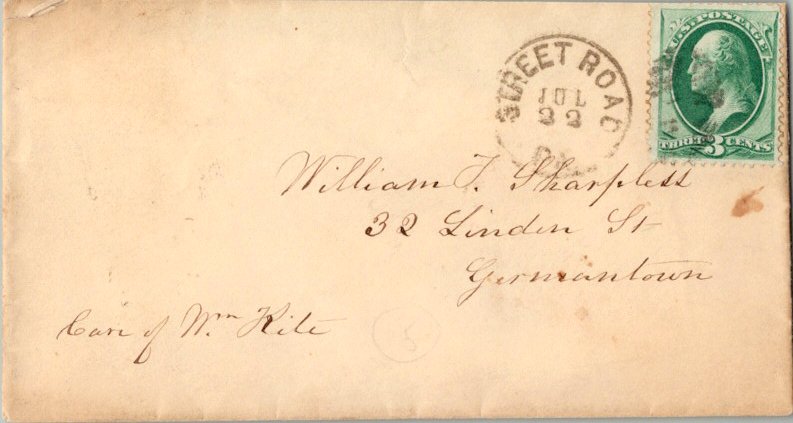 U.S. POSTAGE
THREE 3 CENTS
STREET ROAD
JUL
22
William T. Sharpless
32 Linden St
Germantown
Care of Wm Kite
5